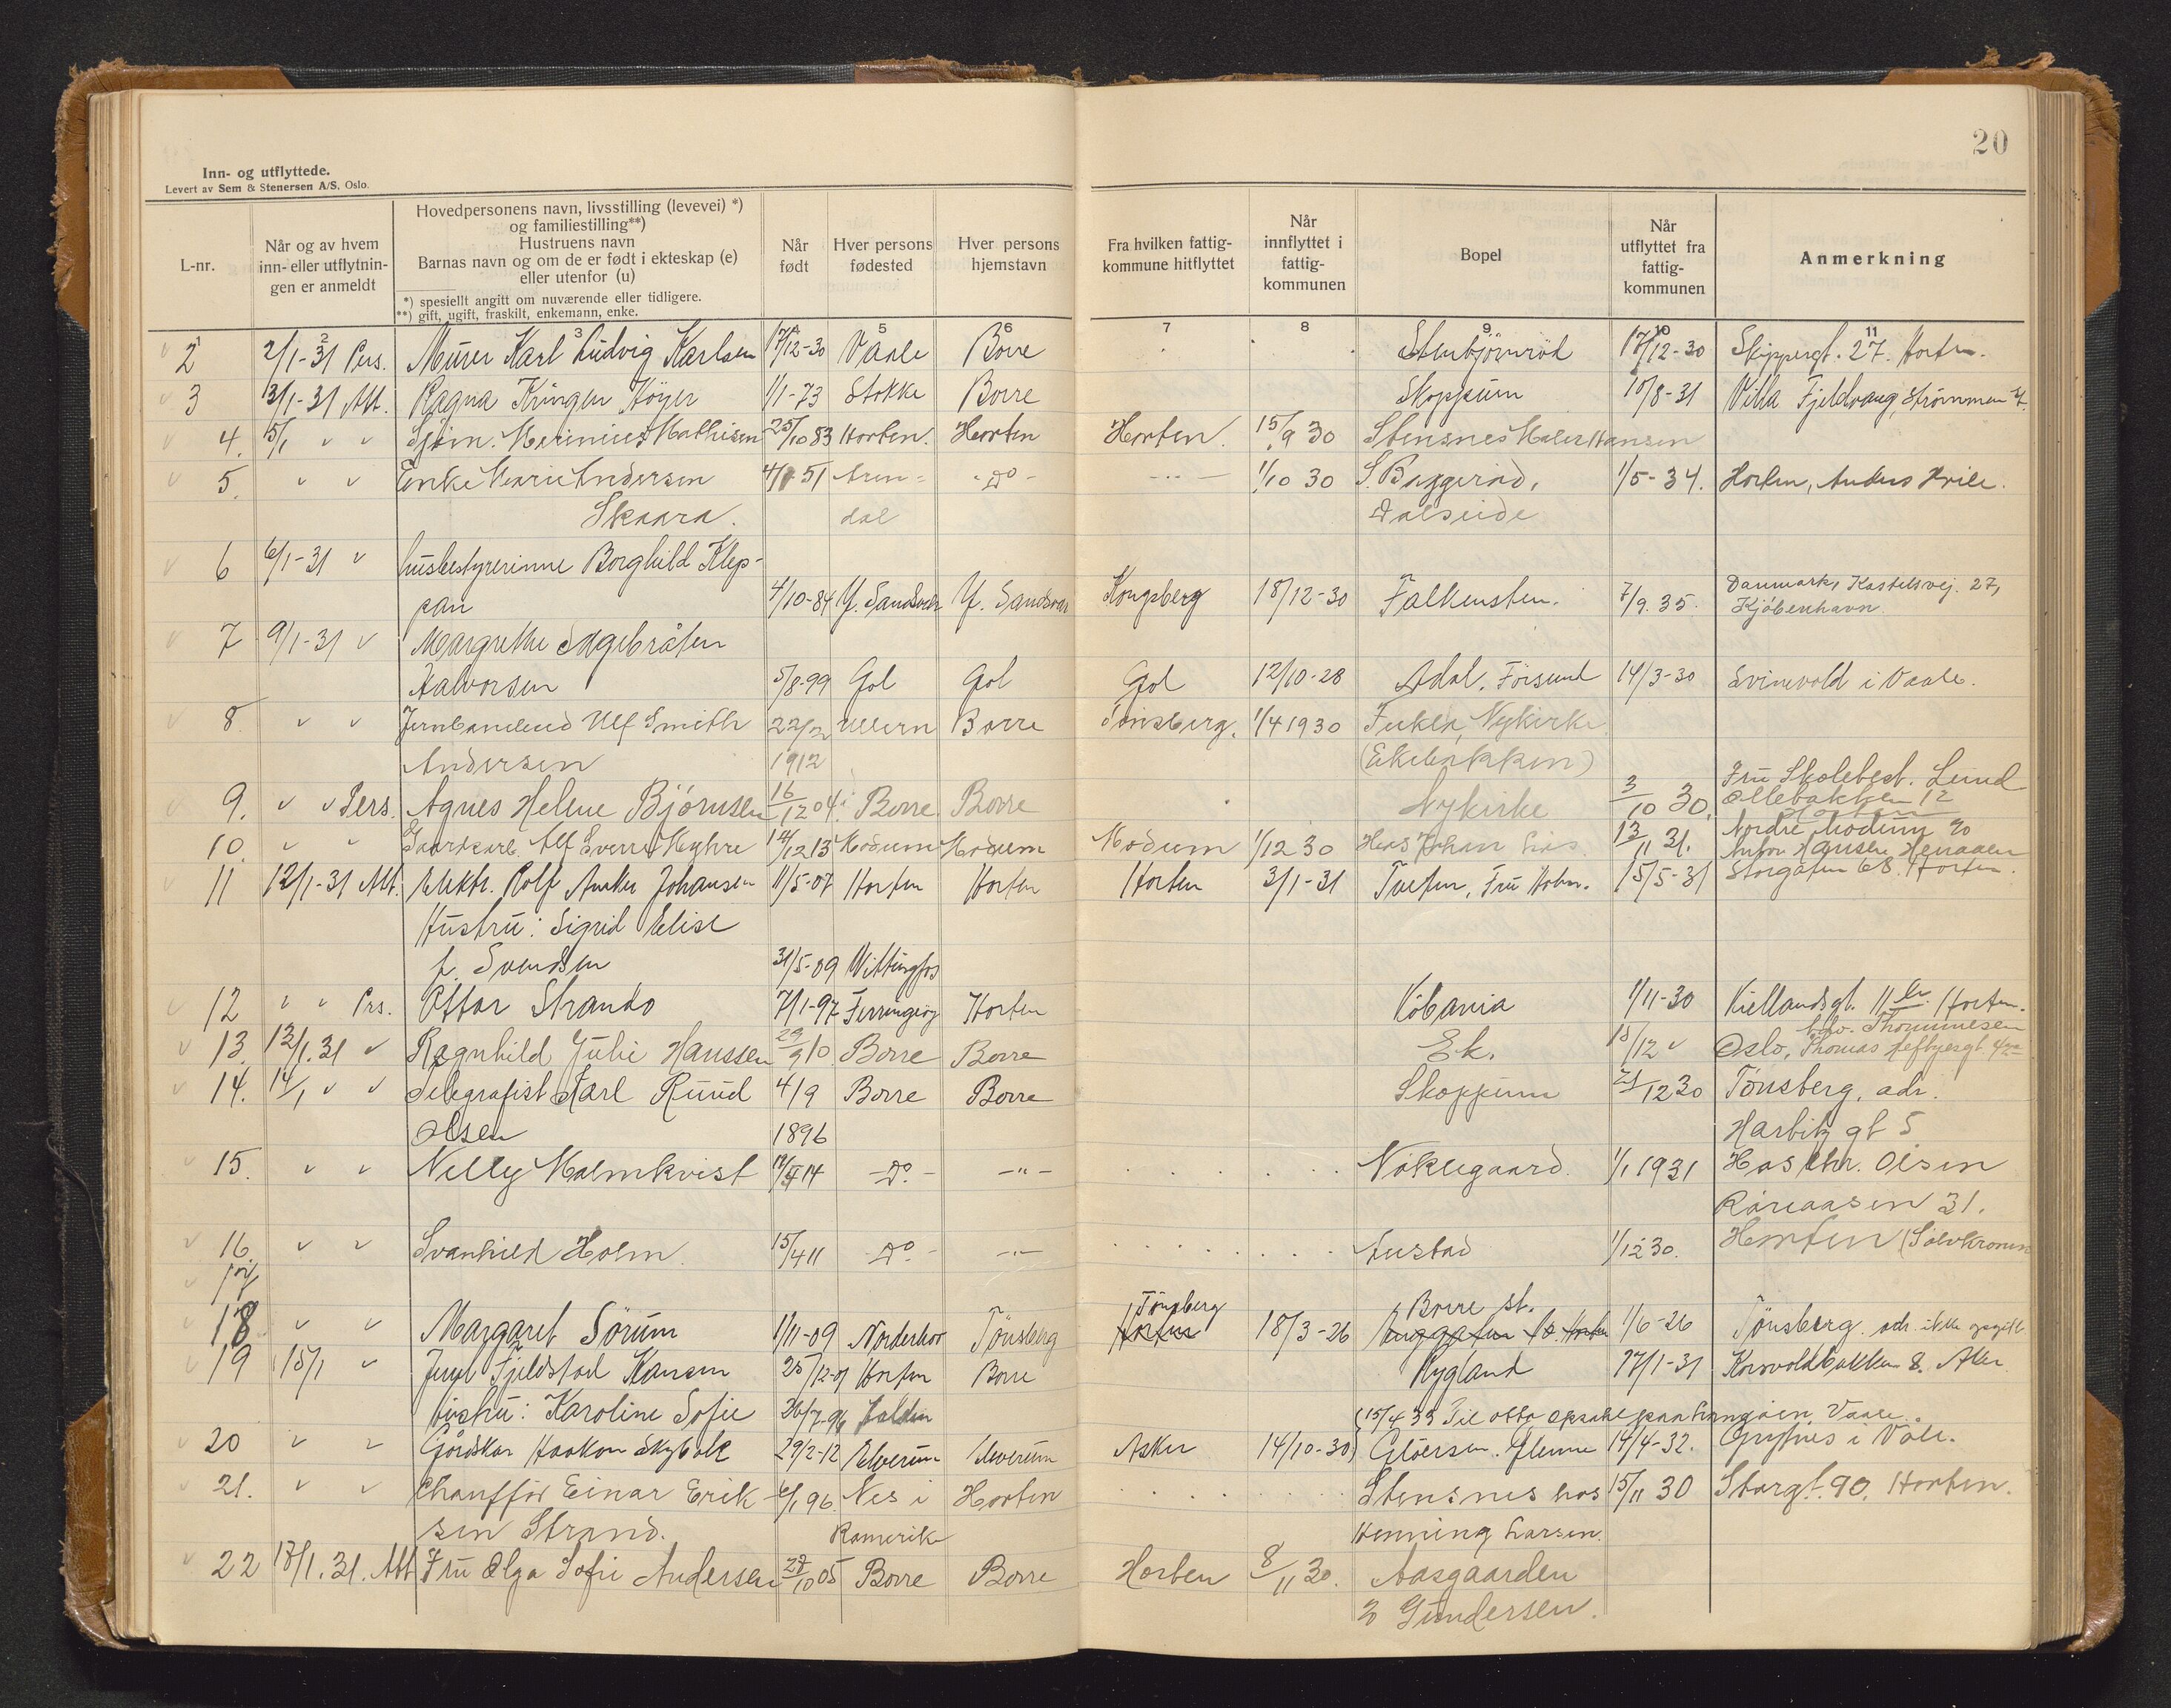 20
Inn- og utflyttede.
Levert av Sem & Stenersen A/S, Oslo.
L-nr.
Når og av hvem inn- eller utflytnin- gen er anmeldt
Hovedpersonens navn, livsstilling (levevei) *) og familiestilling**)
Hustruens navn
Barnas navn og om de er født i ekteskap (e) eller utenfor (u)
*) spesiellt angitt om nuværende eller tidligere.
**) gift, ugift, fraskilt, enkemann, enke.
Når født
Hver persons fødested
Hver persons hjemstavn
Fra hvilken fattig- kommune hitflyttet
Når innflyttet i fattig- kommunen
Bopel
Når utflyttet fra fattig- kommunen
Anmerkning
1 2 3 5 6 7 8 9 10 11
2 2/1-31 Pers. Murer Karl Ludvig Karlsen 17/12-30 Vaale Borre Stenbjörnröd 17/12-30 Skippergt. 27. Horten.
3 3/1-31 Att. Ragna Kringen Höyer 1/1-73 Stokke Borre Skoppum 10/8-31 Villa Fjeldvang, Strömmen st.
4. 5/1 " " Sjöm. Merinius Mathisen 25/10 83 Horten. Horten Horten. 15/9 30 Stensnes Maler Hansen
5. " " Enke Marie Andersen 51 Aren= -Do- -"- 1/10 30 S. Baggeröd, 1/5-34. Horten, Anders Hvile.
Skaara. dal Dalseide
6 6/1-31 " husbestyrerinne Borghild Klep-
pan 4/10-84 Y. Sandsvær Y. Sandsvær Kongsberg 18/12-30 Falkensten. 7/9. 35. Danmark, Kastelsvej. 27,
Kjöbenhavn.
7 9/1-31 " Margrethe Ingebråten
Halvorsen 5/8-99 Gol Gol Gol 12/10-28 Adal, Försund 14/3-30 Svinevold i Vaale.
8. " " Jernbanebud Ulf Smith 22/2 Ullern Borre Tönsberg. 1/4 1930 Nykirke
Andersen 1912 (Ekebakken)
9. " " Pers. Agnes Helene Björnsen 16/12 04. Borre Borre Nykirke 3/10 30. Fru Skolebest. Lund
Ollebakken 12
Horten
10. " " Gaardkarl Alf Sverre Myhre 14/12 13 Modum Modum Modum 1/12 30 Hos Johan Lies 13/11 31. Nordre Modum
Hansen
11 12/1-31 Att. Elektr. Rolf Anker Johansen 11/5-07 Horten Horten Horten 3/1-31 Tveten, Fru Holm. 15/5-31 Storgaten 68. Horten.
Hustru: Sigrid Elise
f. Svendsen 31/5-09 Vittingfos
12 " " Prs. Ottar Strando 7/1-97 Horten Vöbania 1/11-30 Kiellandsgt. 11 Horten.
13. 13/1. 31 " Ragnhild Julie Hanssen 29/9 10 Borre Borre Ek. 18/12 " Oslo, Thomas Heftyesgt.
Thommesen
14. 14/1 " " Telegrafist Karl Ruud 4/9 Borre Borre Skoppum 21/12 30 Tönsberg, adr.
Olsen 1896 Harbitz gt 5
15. " " Nelly Malmkvist 14 -Do- -"- Nöklegaard. 1/1 1931 Hos Chr. Olsen
Röreaasen 31.
16. " " Svanhild Holm. 15/4 11 -Do- -"- Fustad 1/12 30. Horten (Sölvkronen
17
18 " " Margaret Sörum 1/11-09 Norderhov Tönsberg Tönsberg Horten 18/3-26 Borre st. 1/6-26 Tönsberg. adr. ikke opgitt
19 15/1 " Fjeldstad Hansen 25/12-01 Horten Borre Nygland 17/1-31 Korsvoldbakken 8. Aker
Hustru: Karoline Sofie 26/7-96 Halden
(15/4 33 Til Otto Vaale.
20 " " Gårdskar Haakon Skybak 29/2-12 Elverum Elverum Asker 14/10-30) Glöersen. Glenne 14/4-32. i Våle.
21. " " Chafför Einar Erik- 6/1 96. Nes i Horten Stensnes hos 15/11 30 Storgt. 90. Horten.
sen Strand. Romerike Henning Larsen.
22 13/1. 31. Att Fru Olga Sofie Andersen 27/10 05 Borre Borre Horten 8/11 30. Aasgaarden
Gundersen.